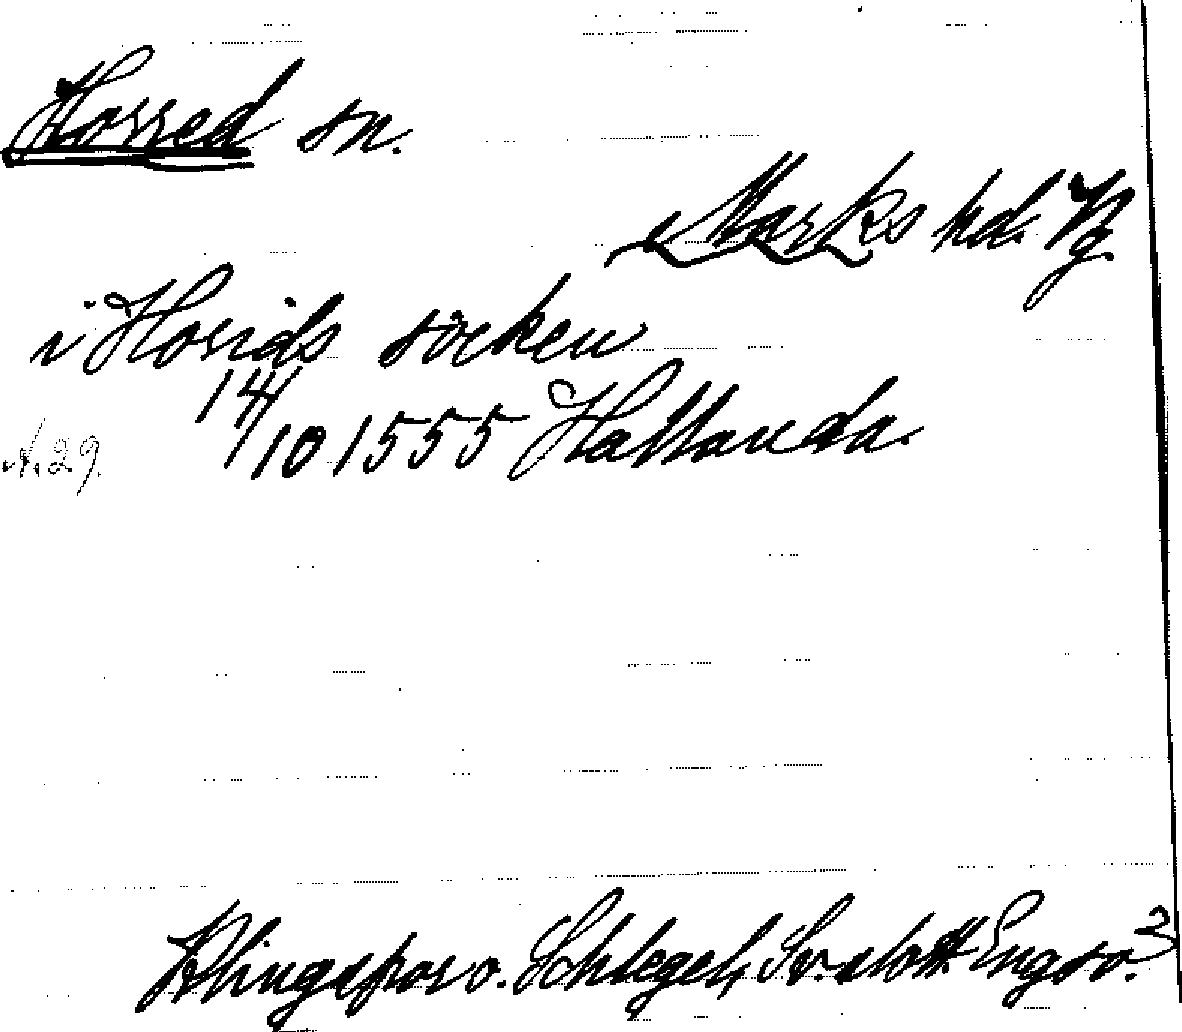 Horred sn.
Marks hd. Vg
i Horids socken
14/10 1555 Hallanda.
N. 29.
Klingspor o. Schlegel, Sv. slott. Engsö.